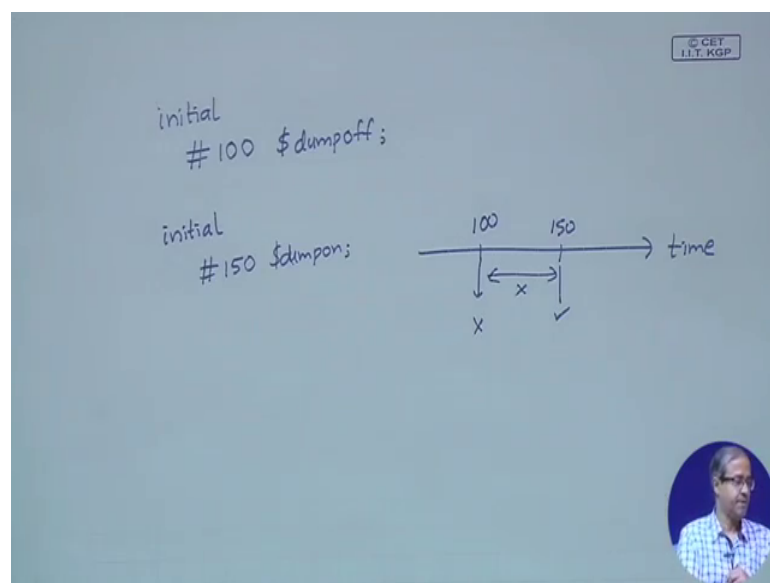 © CET
I.I.T. KGP
initial
#100 $dumpoff;
initial
#150 $dumpon;
100 150
time
x
x ✓